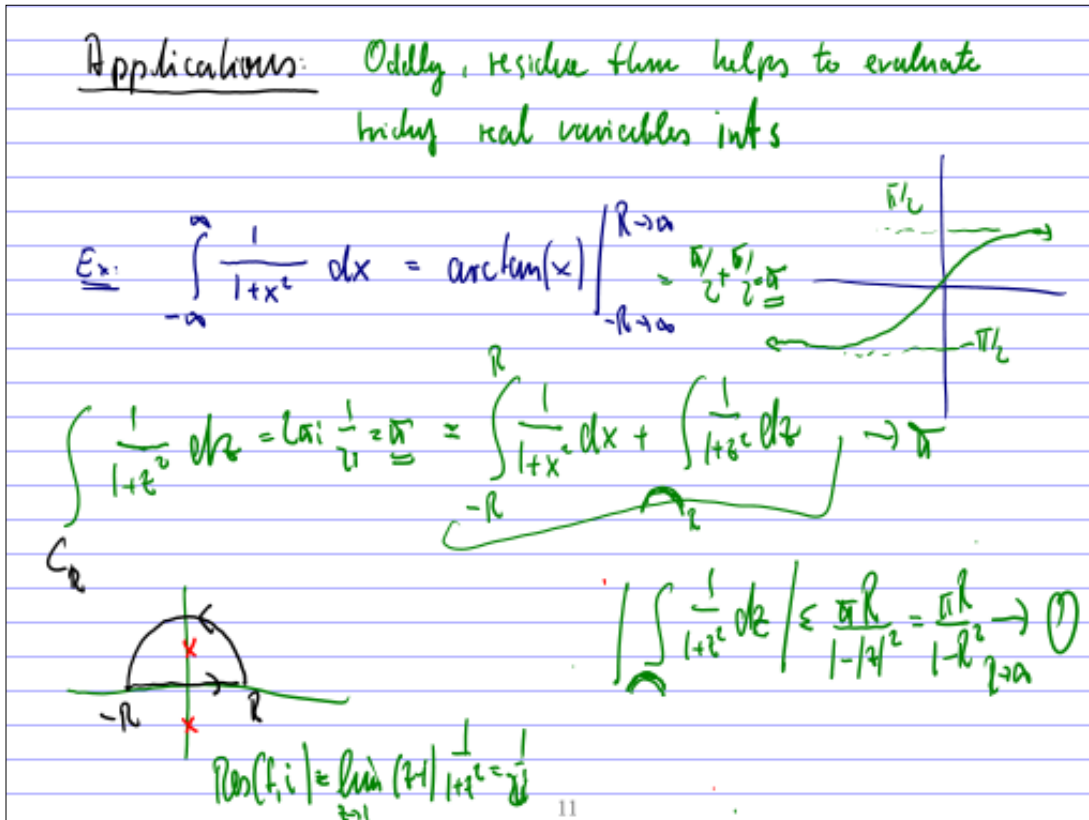 Applications: Oddly, residue thm helps to evaluate
tricky real variables ints
Ex: ∫_{-∞}^{∞} 1/(1+x²) dx = arctan(x) |_{-R→∞}^{R→∞} = π/2 + π/2 = π
π/2
-π/2
∫_{C_R} 1/(1+z²) dz = 2πi 1/2i = π = ∫_{-R}^{R} 1/(1+x²) dx + ∫_{⌒R} 1/(1+z²) dz → π
| ∫_{⌒} 1/(1+z²) dz | ≤ πR/(1-|z|²) = πR/(1-R²) → 0
R→∞
x
-R R
x
Res(f,i) = lim_{z→i} (z-i) 1/(1+z²) = 1/2i
11